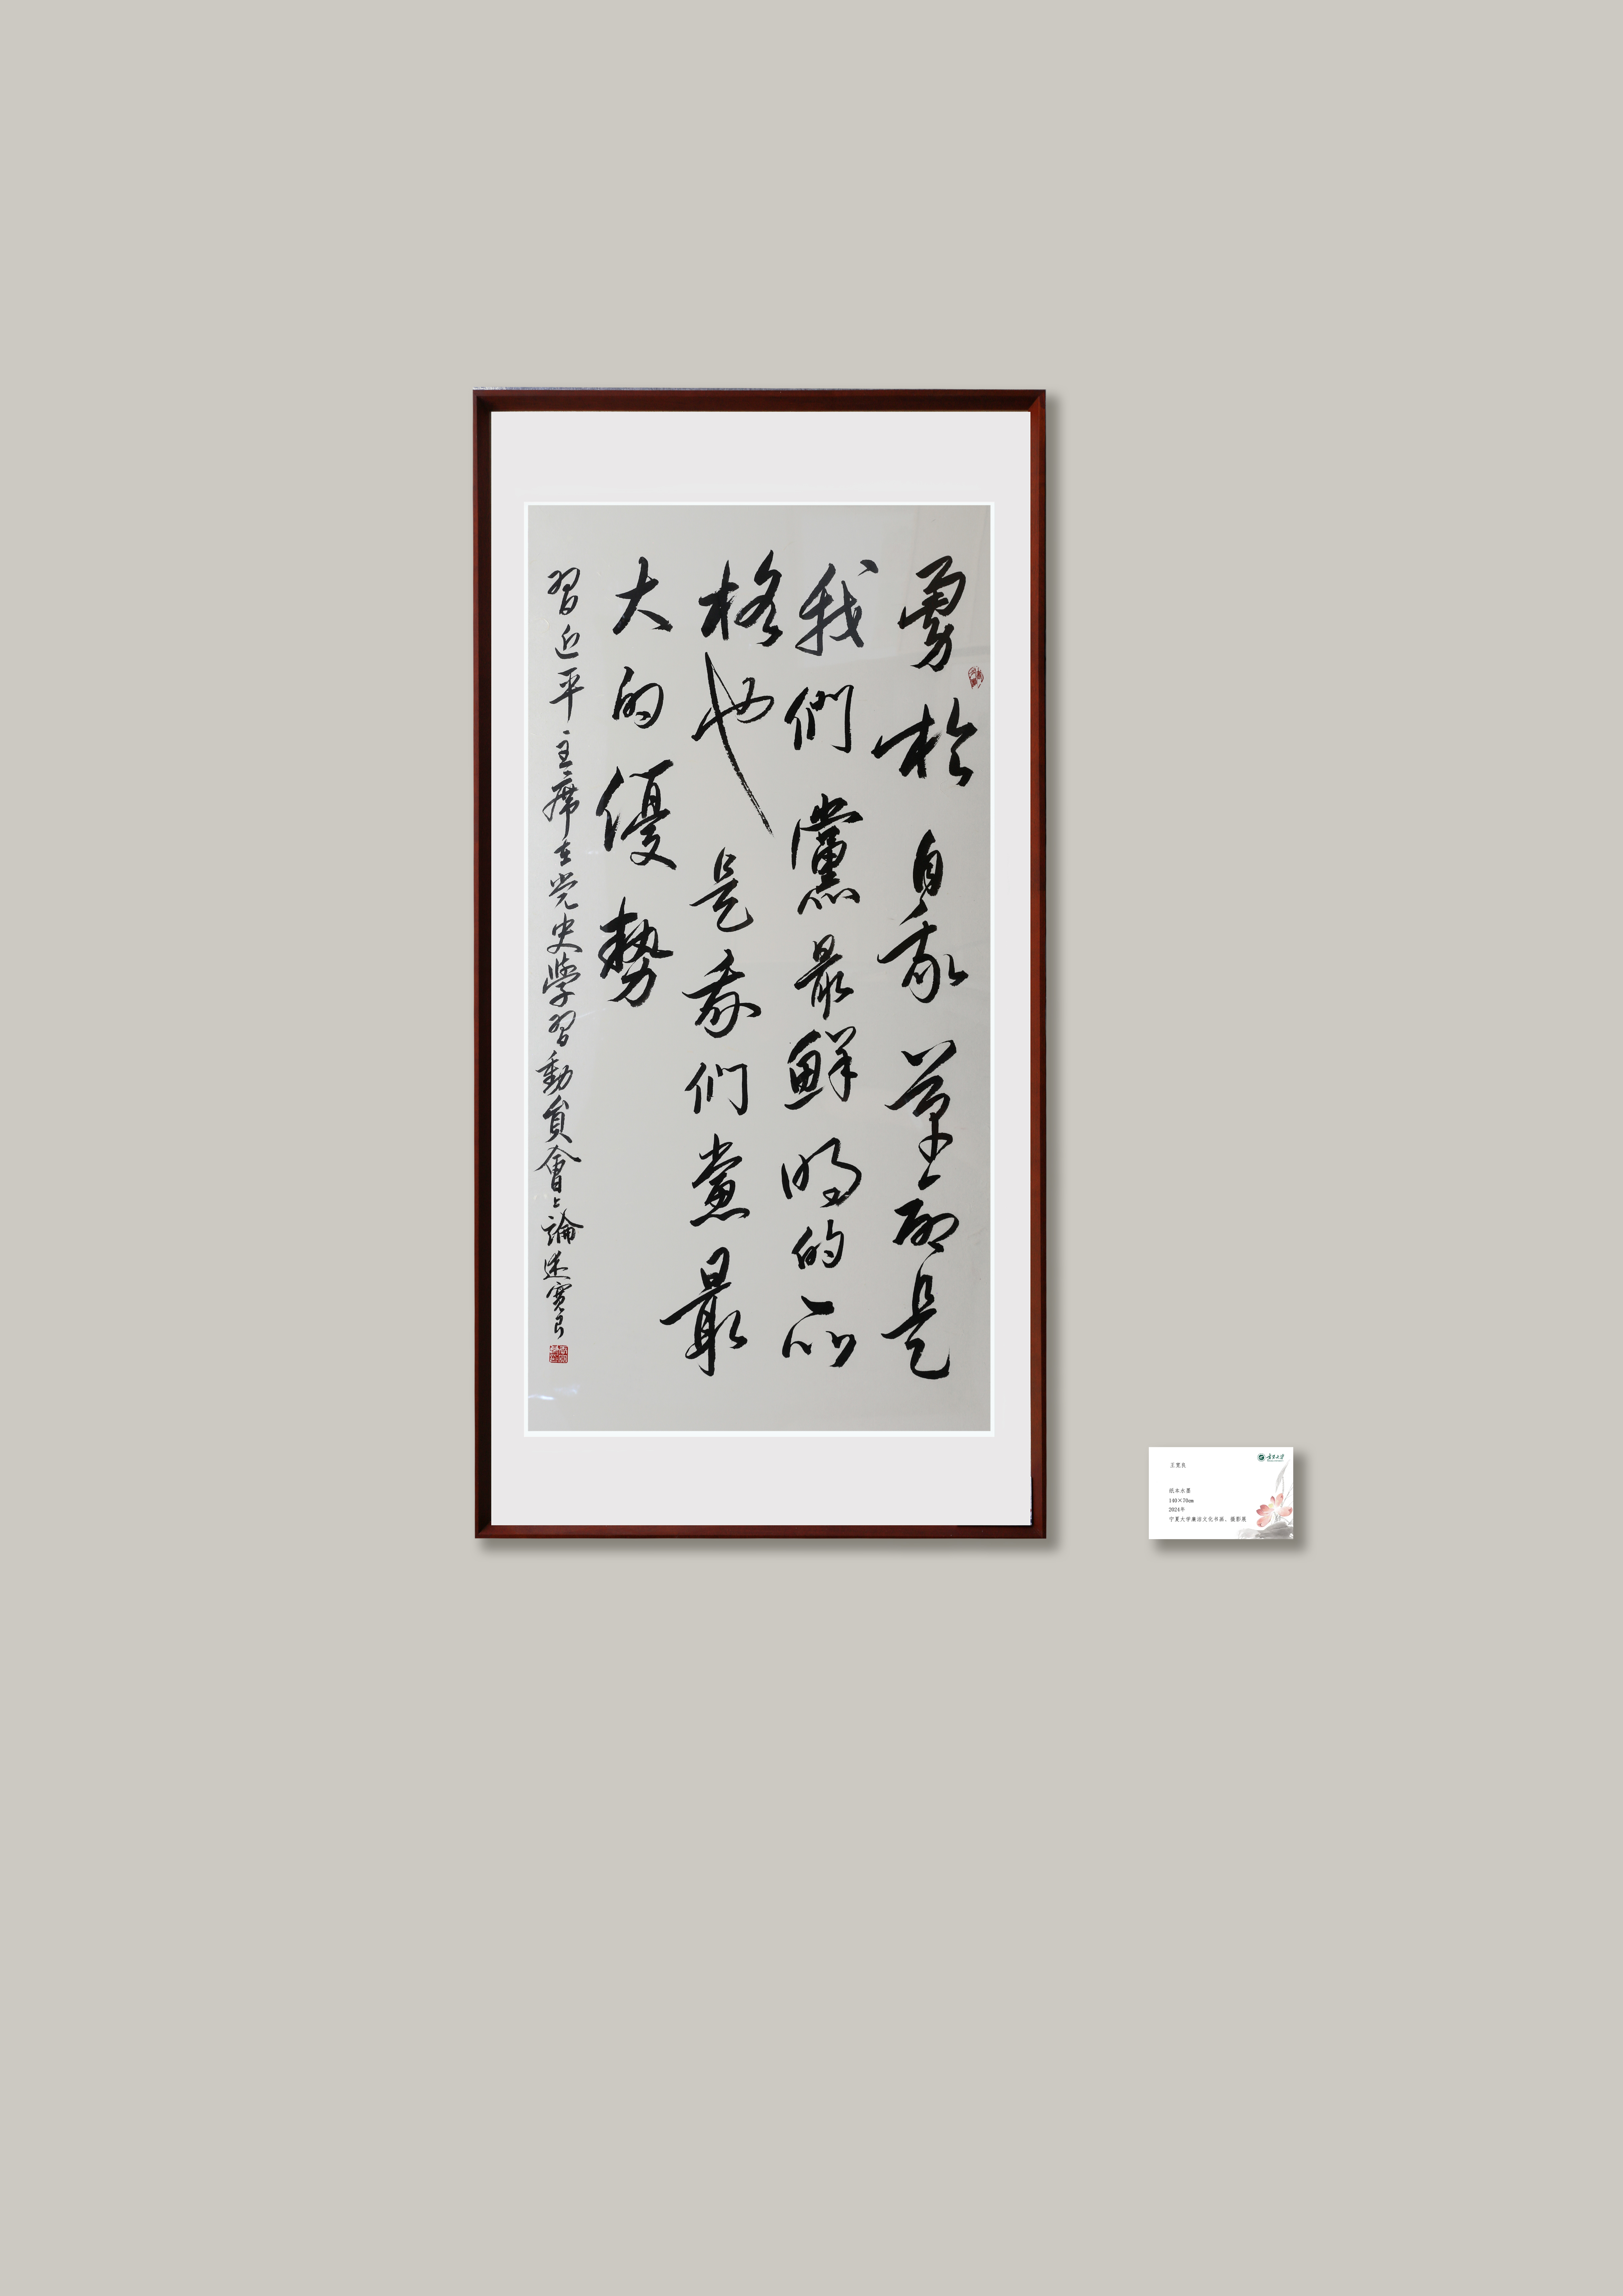 勇於自我革命是
我們黨最鮮明的品
格也是我们黨最
大的優勢
習近平主席在党史學習動員會上論述寬良
王宽良
宁夏大学
纸本水墨
140×70cm
2021年
宁夏大学廉洁文化书画、摄影展